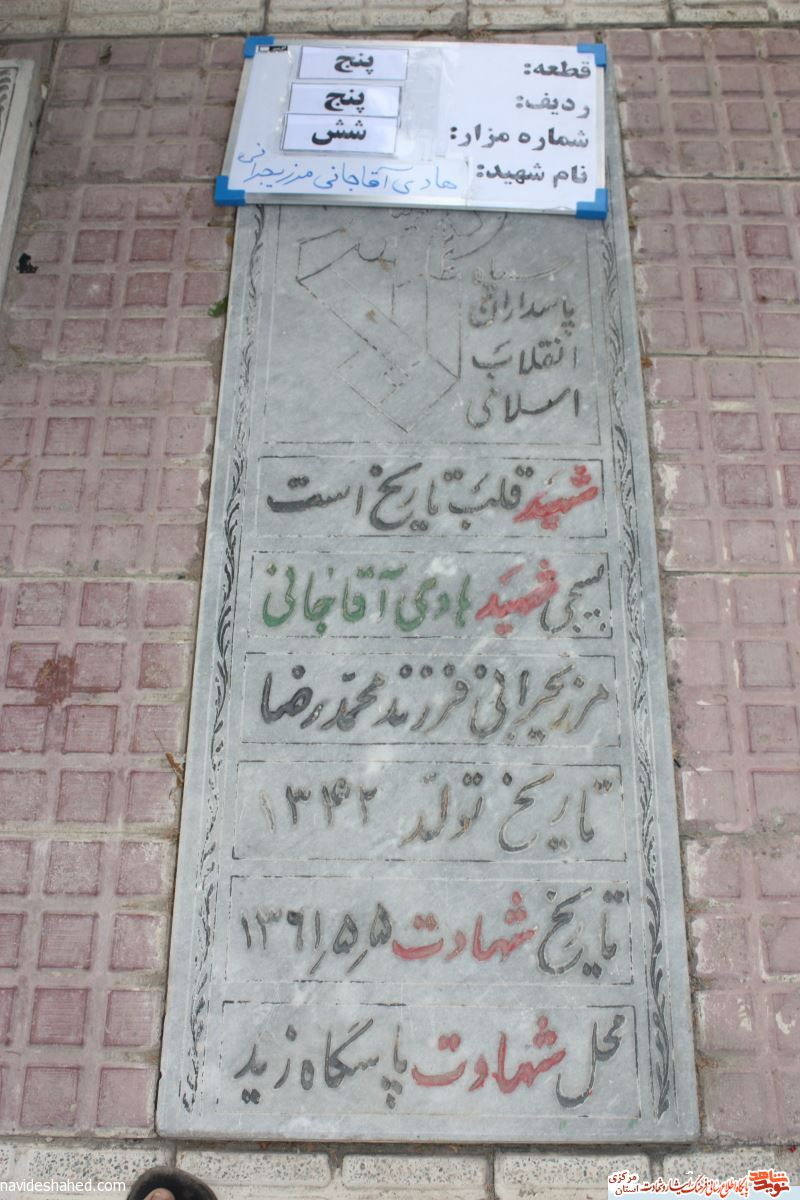 قطعه: پنج
ردیف: پنج
شماره مزار: شش
نام شهید: هادی آقاجانی مرزیجرانی
سپاه
پاسداران
انقلاب
اسلامی
شهید قلب تاریخ است
بسیجی شهید هادی آقاجانی
مرزیجرانی فرزند محمدرضا
تاریخ تولد ۱۳۴۲
تاریخ شهادت ۵ر۵ر۱۳۶۱
محل شهادت پاسگاه زید
navideshahed.com
نوید شاهد
استان مرکزی